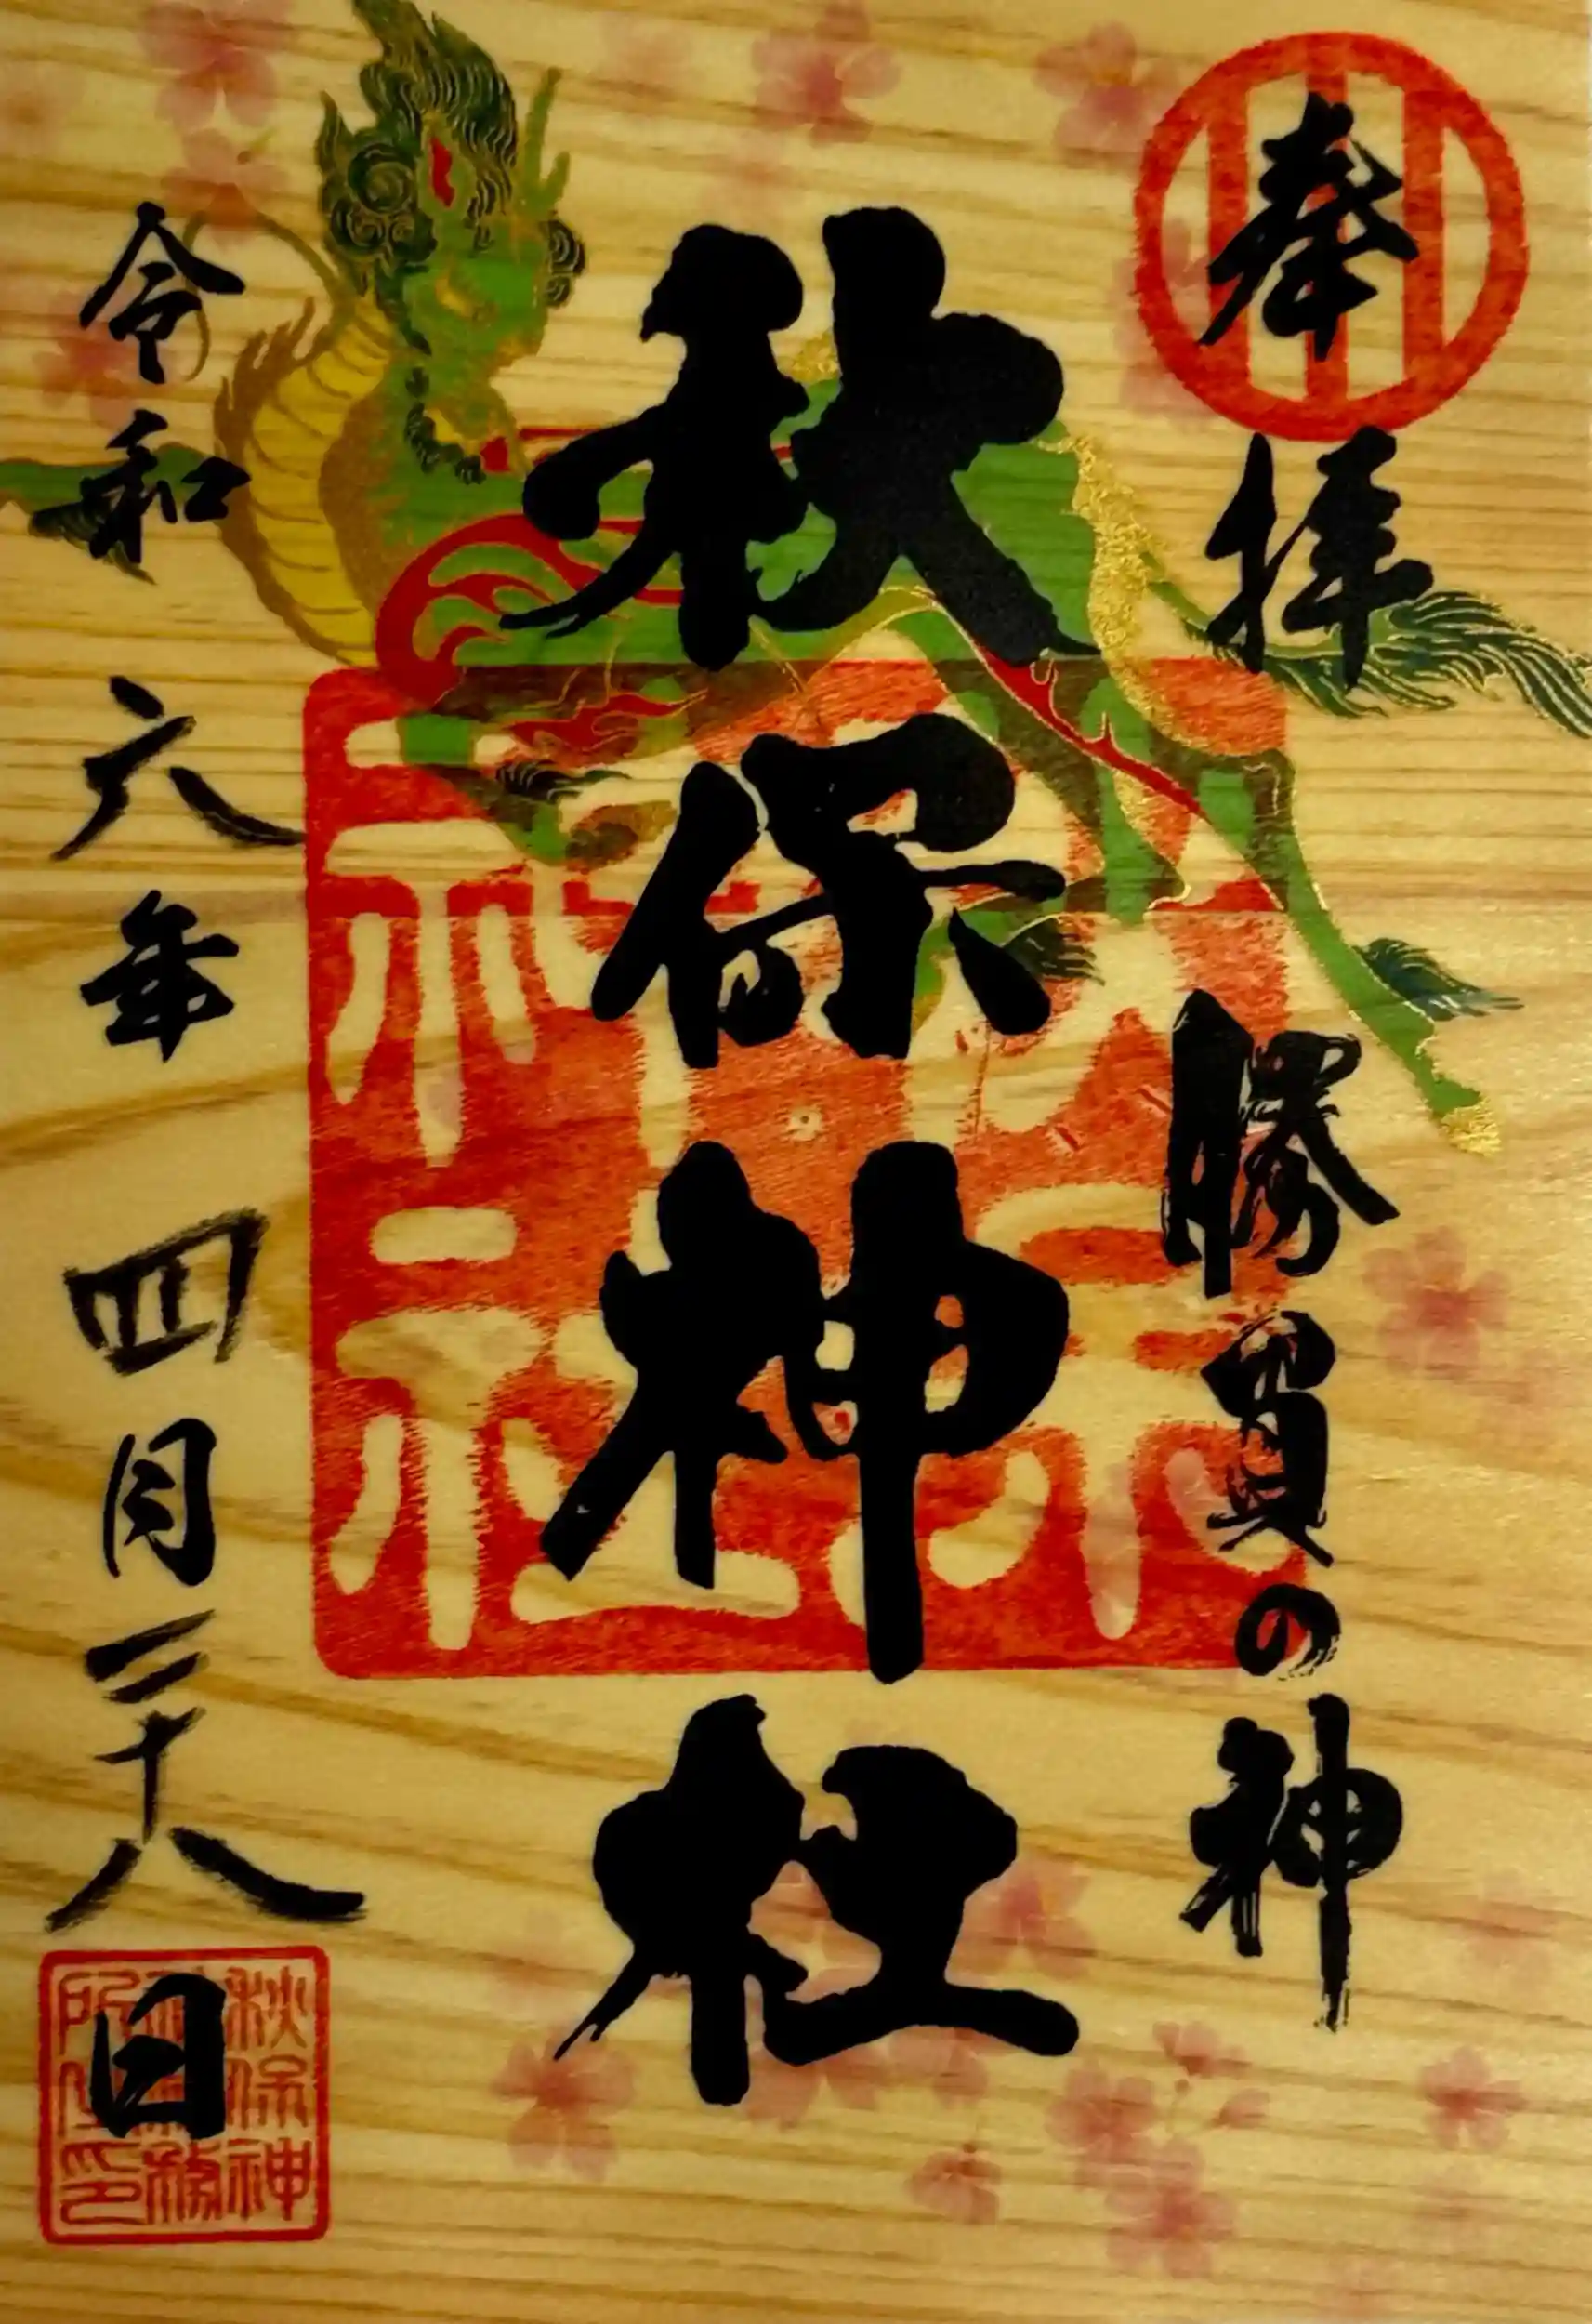 奉拝
勝負の神
秋保神社
令和六年四月二十八日
秋保
神社
秋保神
社務
所之印